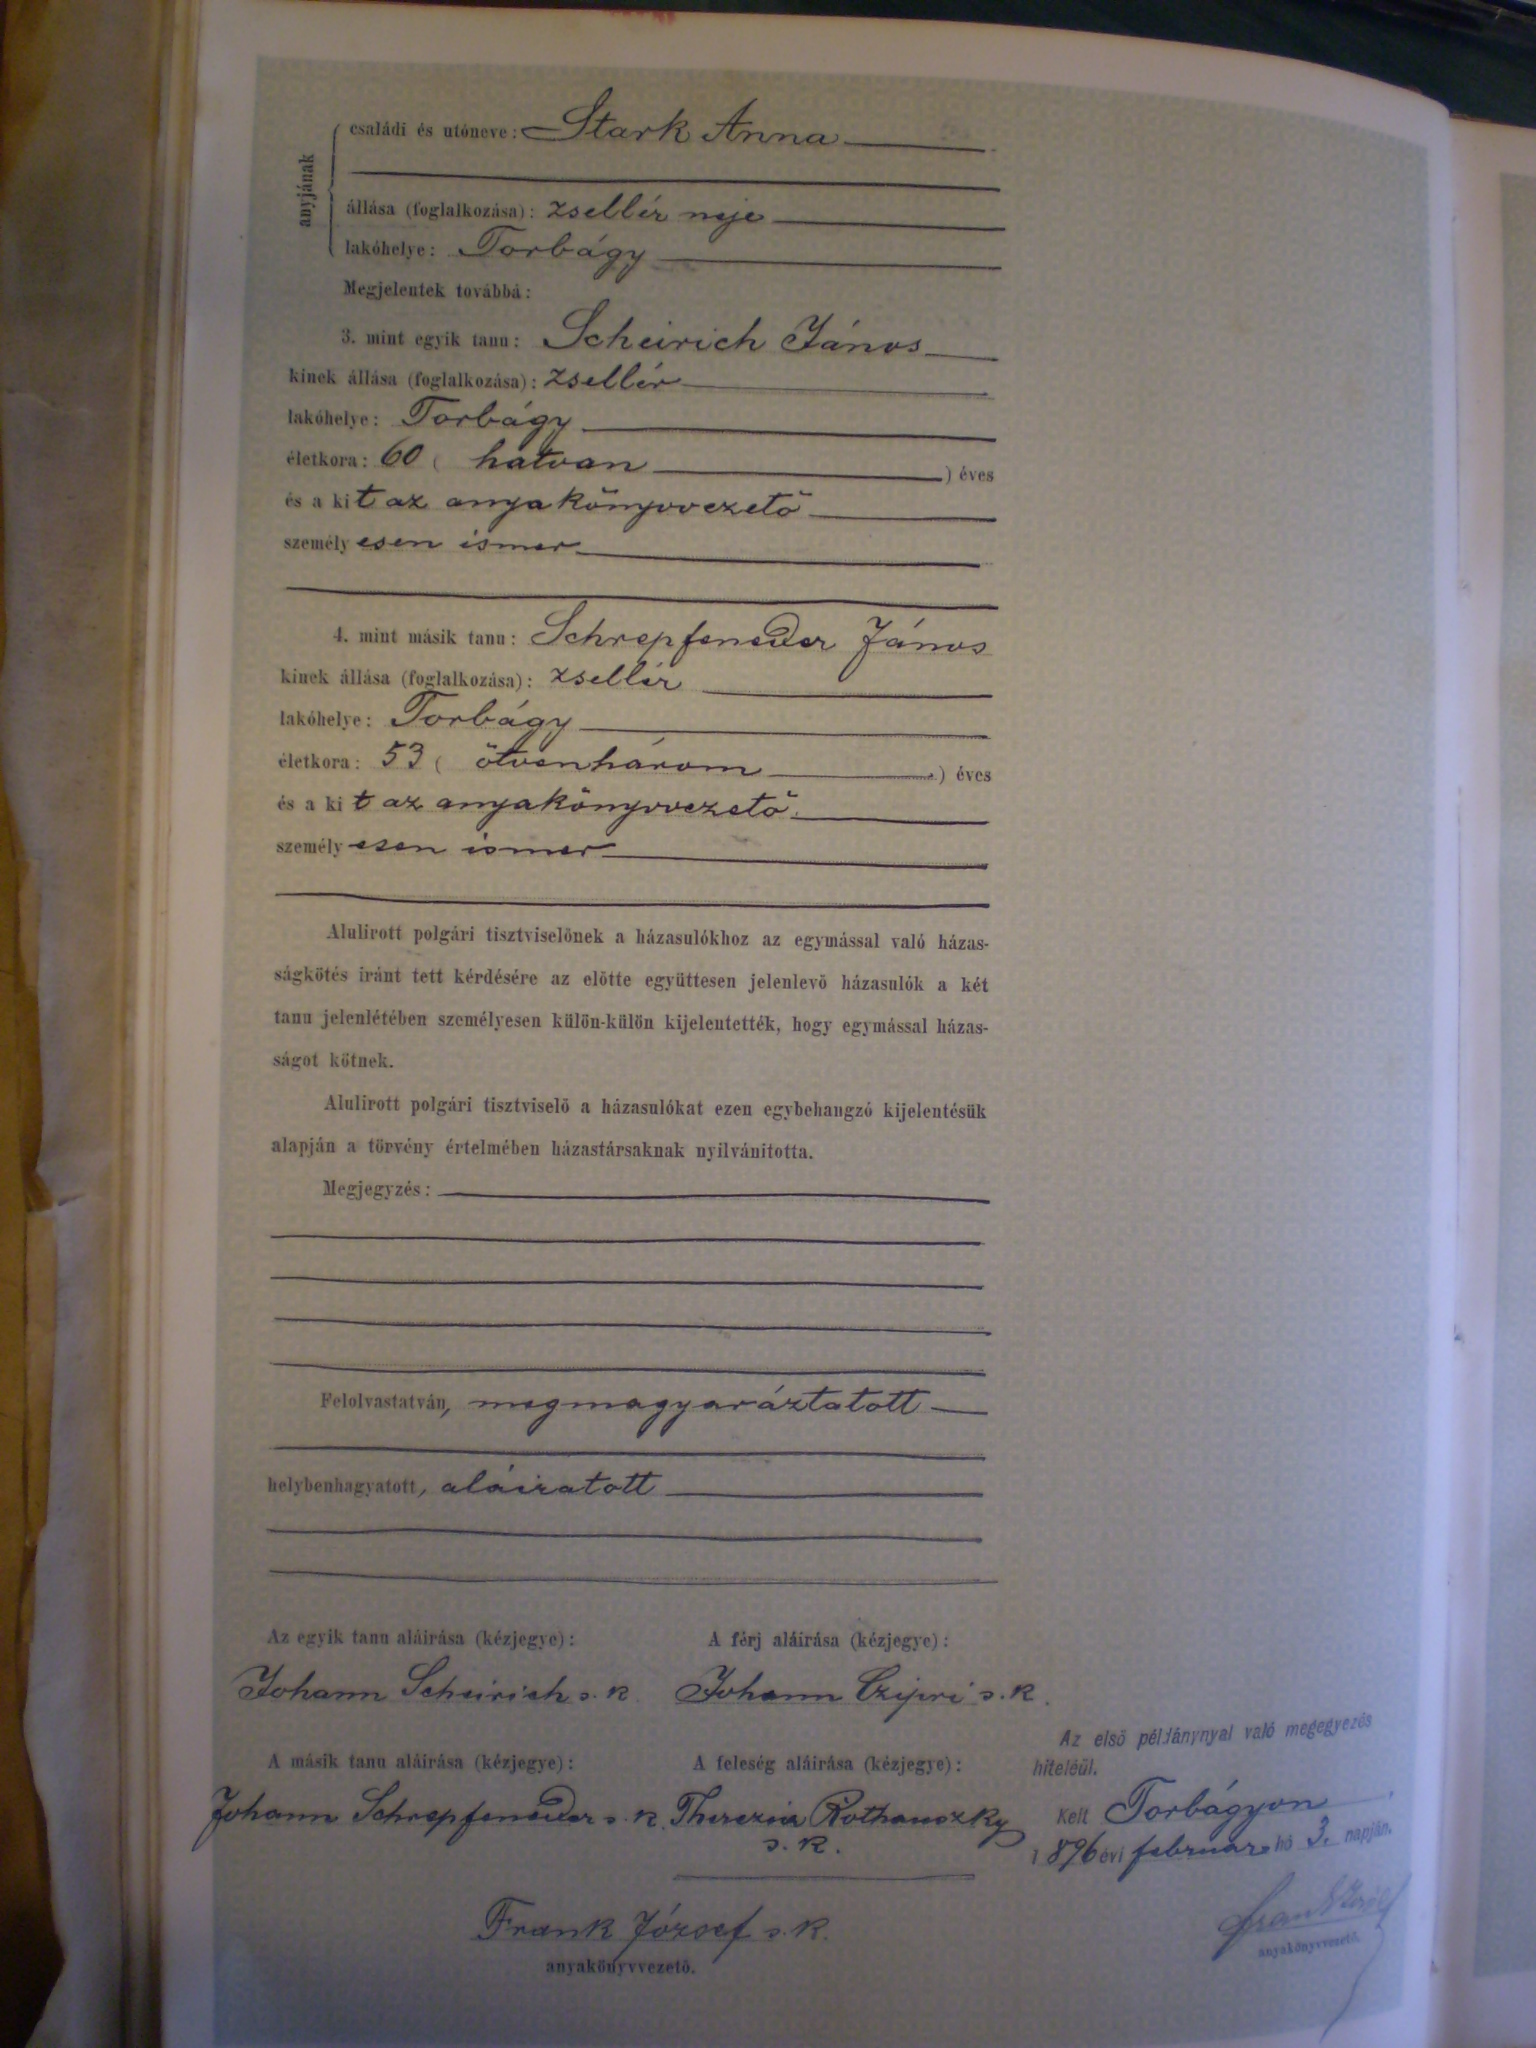 anyjának
családi és utóneve: Stark Anna
állása (foglalkozása): zsellér neje
lakóhelye: Torbágy
Megjelentek továbbá:
3. mint egyik tanu: Scheirich János
kinek állása (foglalkozása): zsellér
lakóhelye: Torbágy
életkora: 60 ( hatvan ) éves
és a kit az anyakönyvvezető
személyesen ismer
4. mint másik tanu: Schrepfeneder János
kinek állása (foglalkozása): zsellér
lakóhelye: Torbágy
életkora: 53 ( ötvenhárom ) éves
és a kit az anyakönyvvezető
személyesen ismer
Alulirott polgári tisztviselőnek a házasulókhoz az egymással való házas-
ságkötés iránt tett kérdésére az előtte együttesen jelenlevő házasulók a két
tanu jelenlétében személyesen külön-külön kijelentették, hogy egymással házas-
ságot kötnek.
Alulirott polgári tisztviselő a házasulókat ezen egybehangzó kijelentésük
alapján a törvény értelmében házastársaknak nyilvánitotta.
Megjegyzés:
Felolvastatván, megmagyaráztatott
helybenhagyatott, aláiratott
Az egyik tanu aláirása (kézjegye):
Johann Scheirich s. k.
A férj aláirása (kézjegye):
Johann Czipri s. k.
A másik tanu aláirása (kézjegye):
Johann Schrepfeneder s. k.
A feleség aláirása (kézjegye):
Therezia Rothanszky
s. k.
Frank József s. k.
anyakönyvvezető.
Az első példánynyal való megegyezés
hiteléül.
Kelt Torbágyon
1896 évi február hó 3. napján.
Frank József
anyakönyvvezető.